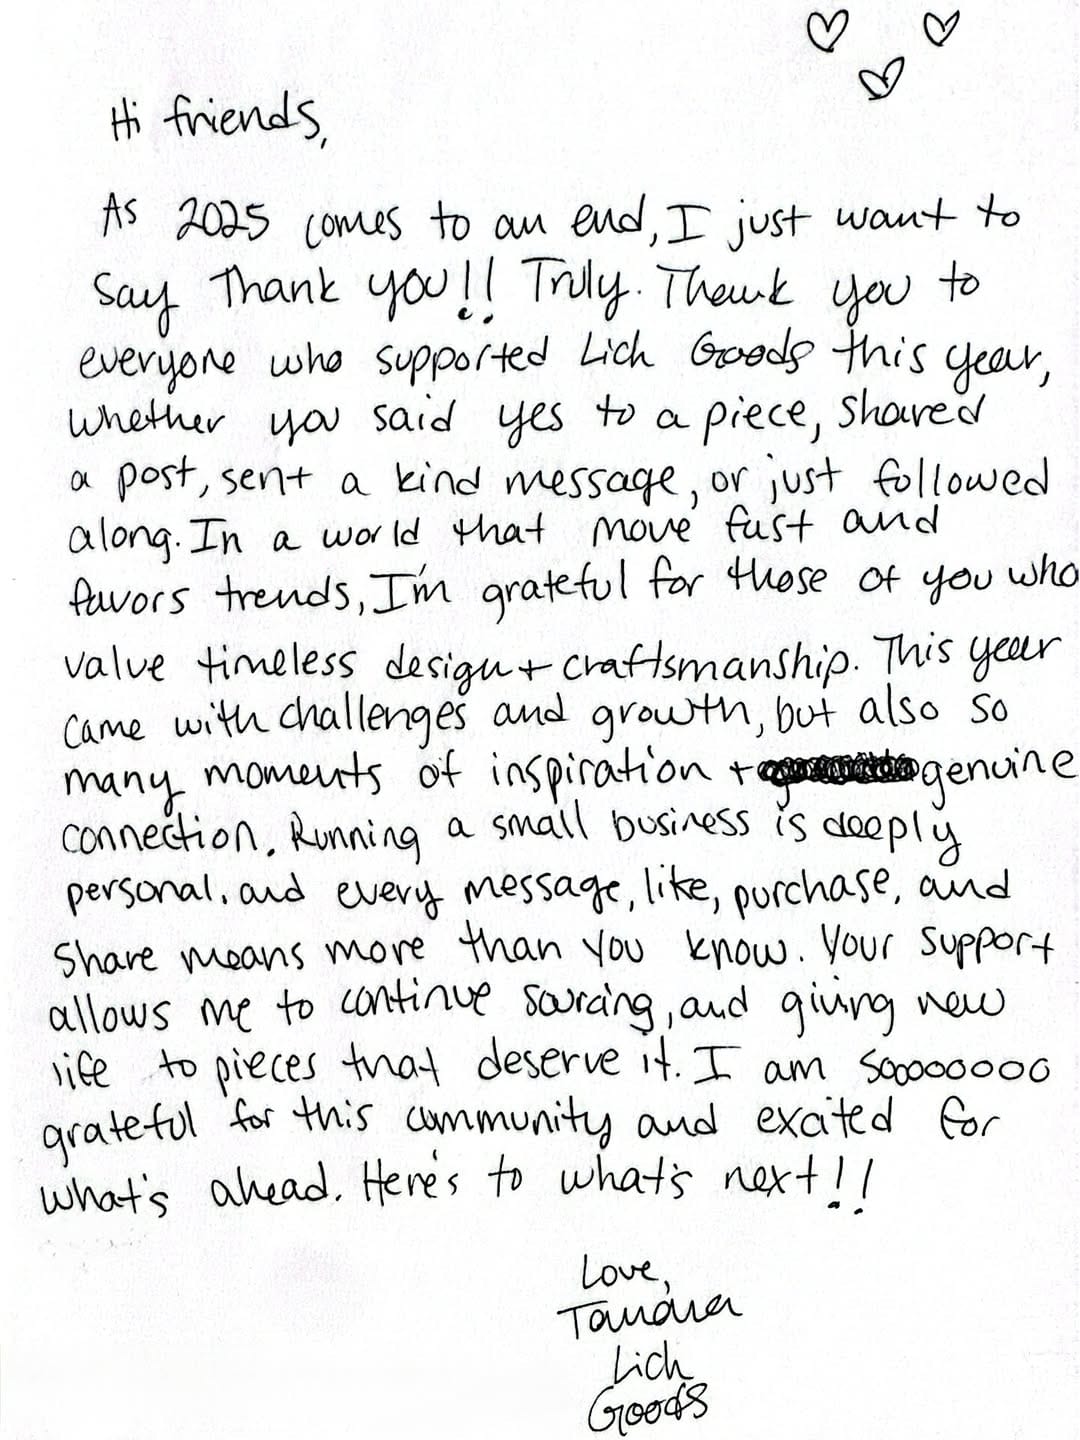 Hi friends,
As 2025 comes to an end, I just want to
say Thank you!! Truly. Thank you to
everyone who supported Lich Goods this year,
whether you said yes to a piece, shared
a post, sent a kind message, or just followed
along. In a world that move fast and
favors trends, I'm grateful for those of you who
value timeless design + craftsmanship. This year
came with challenges and growth, but also so
many moments of inspiration + genuine
connection. Running a small business is deeply
personal, and every message, like, purchase, and
share means more than you know. Your support
allows me to continue sourcing, and giving new
life to pieces that deserve it. I am soooooooo
grateful for this community and excited for
what's ahead. Here's to what's next!!
Love,
Lich
Goods